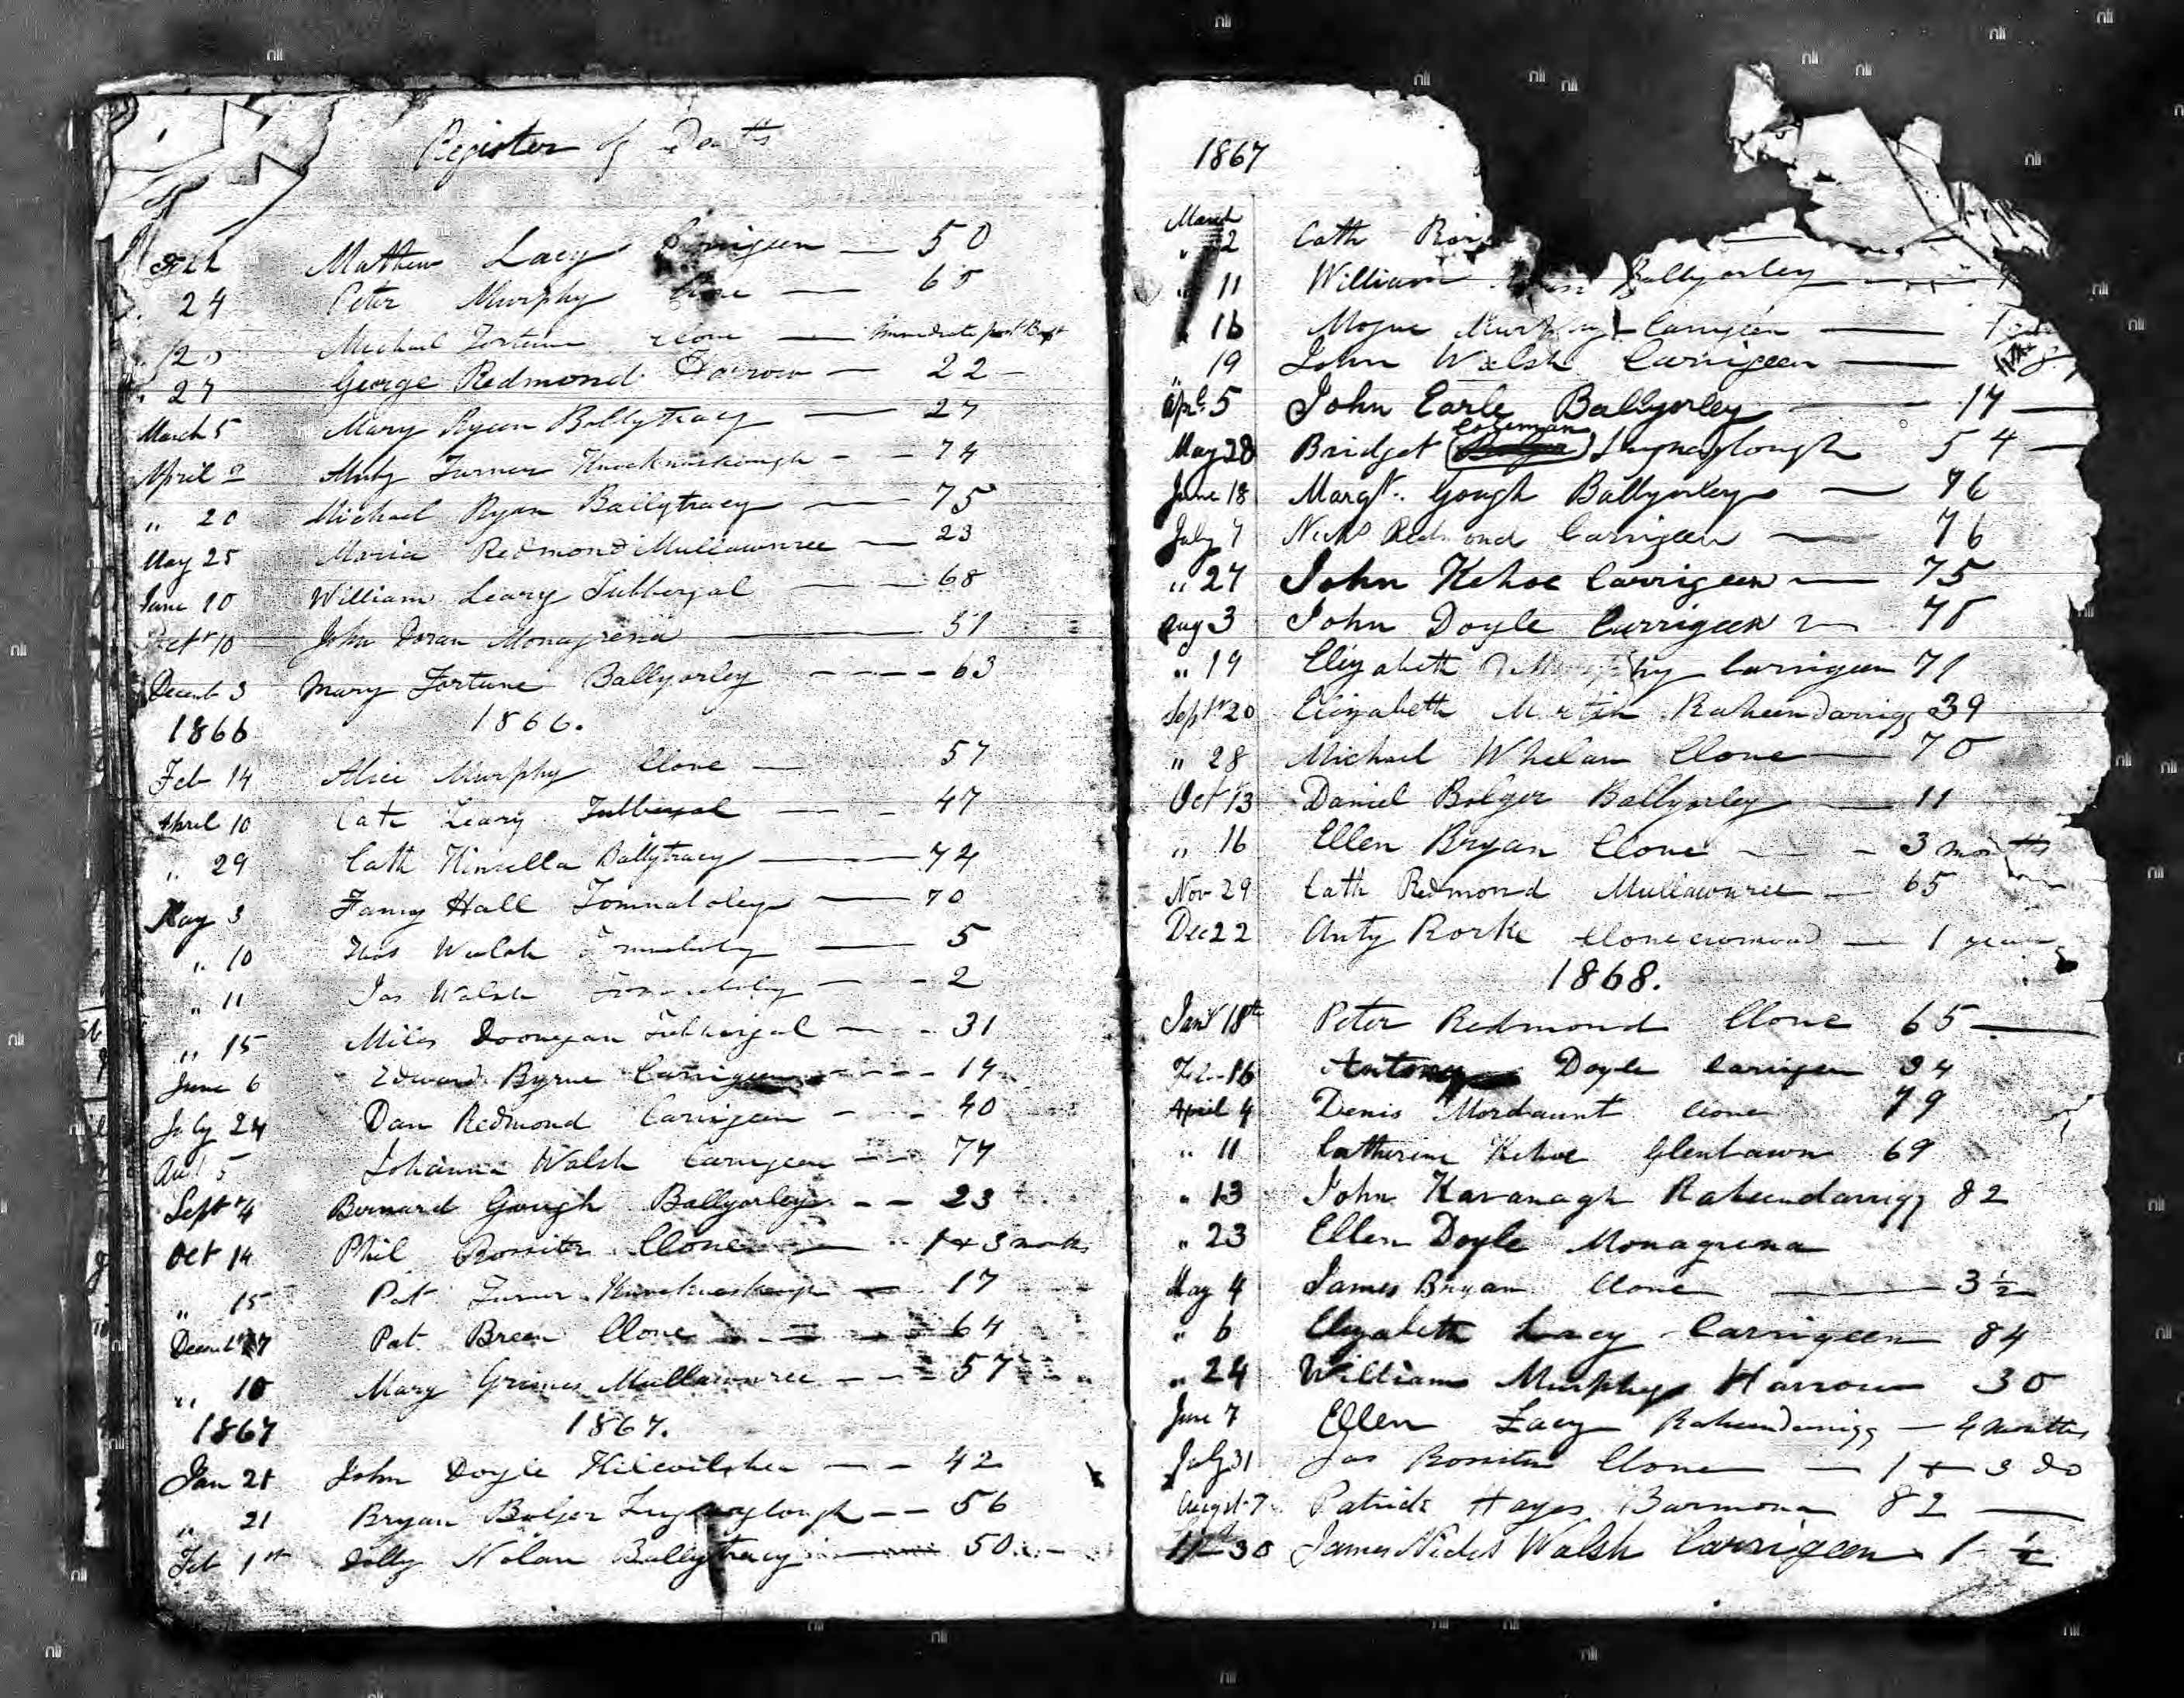 Register of Deaths
Feb Mathew Lacy 50
24 Peter Murphy Clone 65
Michael Fortune Clone Immediate post Bapt
27 George Redmond Harrow 22
March 5 Mary Ryan Ballytracy 27
April 2 Turner 74
" 20 Michael Ryan Ballytracy 75
May 25 Maria Redmond Mullawnree 23
June 10 William Leary Tubbergal 68
10 John Doran Monagrena 51
Decemb 3 Mary Fortune Ballyorley 63
1866 1866.
Feb 14 Alice Murphy Clone 57
April 10 Cath Leary Tubbergal 47
" 29 Cath Kinsella Ballytracy 72
May 3 Fanny Hall Tomnaboley 70
" 10 Thos Walsh 5
" 11 Jas Walsh 2
" 15 Miles Doonegan Tubbergal 31
June 6 Edward Byrne Carrigeen 14
July 24 Dan Redmond Carrigeen 40
5 Johanna Walsh Carrigeen 77
Sept 4 Bernard Gough Ballyorley 23
Oct 14 Phil Rossiter Clone 1 + 3 months
" 15 Pat Turner 17
Pat Breen Clone 64
" 10 Mary Grimes Mullawnree 57
1867 1867.
Jan 21 John Doyle 42
" 21 Bryan Bolger 56
Feb 1st Nolan Ballytracy 50
1867
March
" 2 Cath
" 11 William Ballyorley
" 16 Mogue Murphy Carrigeen
" 19 John Walsh Carrigeen
Apl 5 John Earle Ballyorley 17
Coleman
May 28 Bridget (Bolger) 54
June 18 Margt. Gough Ballyorley 76
July 7 Nichs Redmond Carrigeen 76
" 27 John Kehoe Carrigeen 75
Aug 3 John Doyle Carrigeen
" 19 Elizabeth Murphy Carrigeen 71
Septr 20 Elizabeth Raheendarrigg 39
" 28 Michael Whelan Clone 70
Oct 13 Daniel Bolger Ballyorley 11
" 16 Ellen Bryan Clone 3 months
Nov 29 Cath Redmond Mullawnree 65
Dec 22 Anty Rorke 1 year
1868.
Jany 18th Peter Redmond Clone 65
Feb 16 Antony Doyle Carrigeen 34
April 4 Denis Mordaunt Clone 79
" 11 Catherine Kehoe Glenbawn 69
" 13 John Kavanagh Raheendarrigg 82
" 23 Ellen Doyle Monagrena
May 4 James Bryan Clone 3 1/2
" 6 Elizabeth Lacy Carrigeen 84
" 24 William Murphy Harrow 30
June 7 Ellen Lacy Raheendarrigg 4 months
July 31 Jas Rossiter Clone 1 + 3 do
August 7 Patrick Hayes Barmona 82
30 James Nichs Walsh Carrigeen 1 1/2